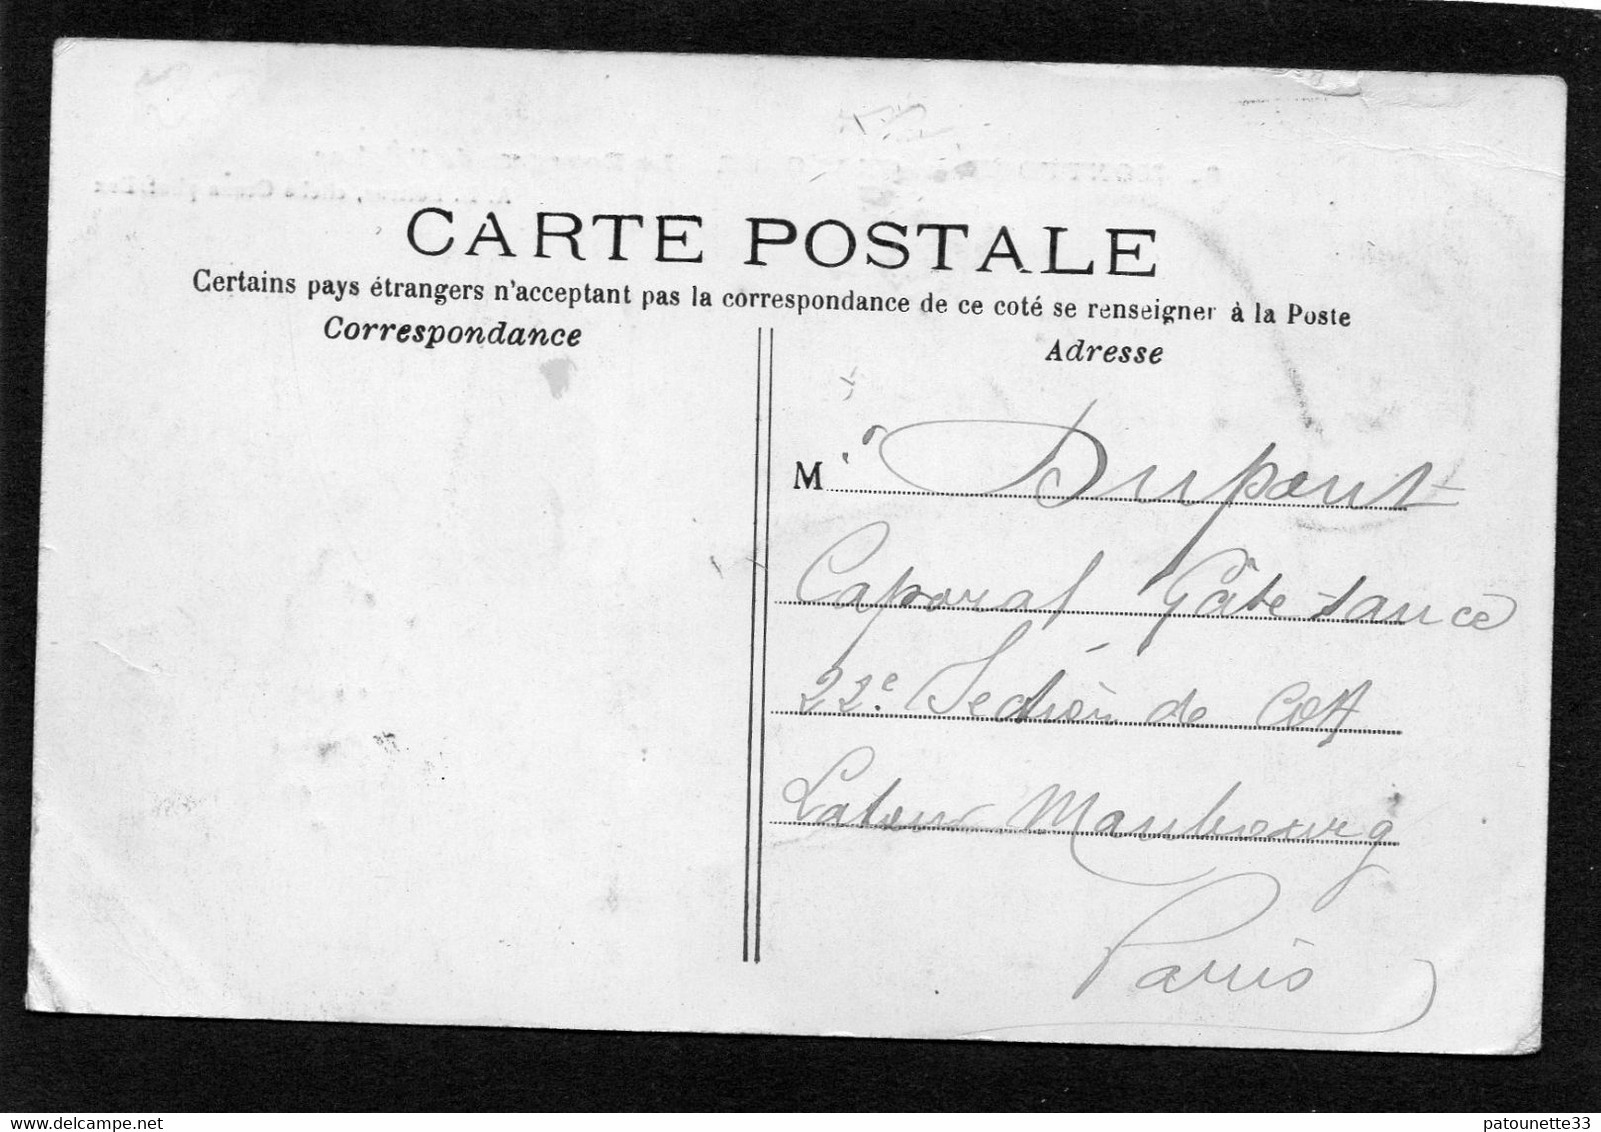 CARTE POSTALE
Certains pays étrangers n'acceptant pas la correspondance de ce coté se renseigner à la Poste
Correspondance
Adresse
M. Dupont
Caporal Gâte-sauce
22e Section de COA
Latour Maubourg
Paris
delcampe.net
patounette33